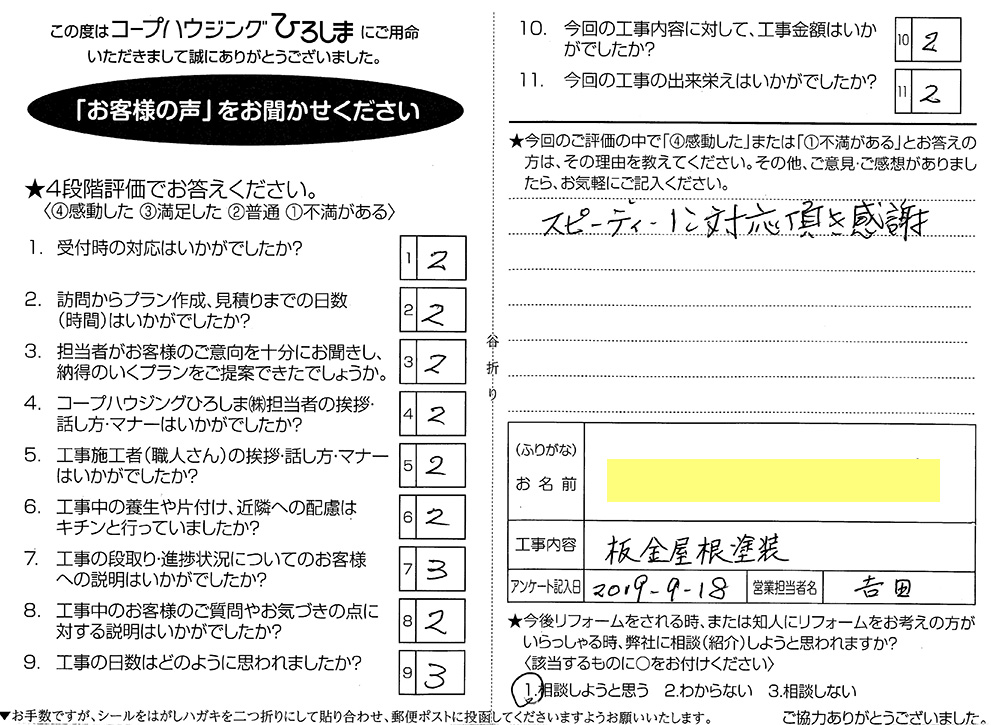 この度はコープハウジングひろしまにご用命
いただきまして誠にありがとうございました。
「お客様の声」をお聞かせください
★4段階評価でお答えください。
〈④感動した ③満足した ②普通 ①不満がある〉
1. 受付時の対応はいかがでしたか?
1 2
2. 訪問からプラン作成、見積りまでの日数
(時間)はいかがでしたか?
2 2
3. 担当者がお客様のご意向を十分にお聞きし、
納得のいくプランをご提案できたでしょうか。
3 2
4. コープハウジングひろしま㈱担当者の挨拶・
話し方・マナーはいかがでしたか?
4 2
5. 工事施工者(職人さん)の挨拶・話し方・マナー
はいかがでしたか?
5 2
6. 工事中の養生や片付け、近隣への配慮は
キチンと行っていましたか?
6 2
7. 工事の段取り・進捗状況についてのお客様
への説明はいかがでしたか?
7 3
8. 工事中のお客様のご質問やお気づきの点に
対する説明はいかがでしたか?
8 2
9. 工事の日数はどのように思われましたか?
9 3
▼お手数ですが、シールをはがしハガキを二つ折りにして貼り合わせ、郵便ポストに投函してくださいますようお願いいたします。
谷折り
10. 今回の工事内容に対して、工事金額はいか
がでしたか?
10 2
11. 今回の工事の出来栄えはいかがでしたか?
11 2
★今回のご評価の中で「④感動した」または「①不満がある」とお答えの
方は、その理由を教えてください。その他、ご意見・ご感想がありまし
たら、お気軽にご記入ください。
スピーディーに対応頂き感謝
(ふりがな)
お名前
工事内容 板金屋根塗装
アンケート記入日 2019-9-18 営業担当者名 吉田
★今後リフォームをされる時、または知人にリフォームをお考えの方が
いらっしゃる時、弊社に相談(紹介)しようと思われますか?
〈該当するものに○をお付けください〉
1.相談しようと思う 2.わからない 3.相談しない
ご協力ありがとうございました。